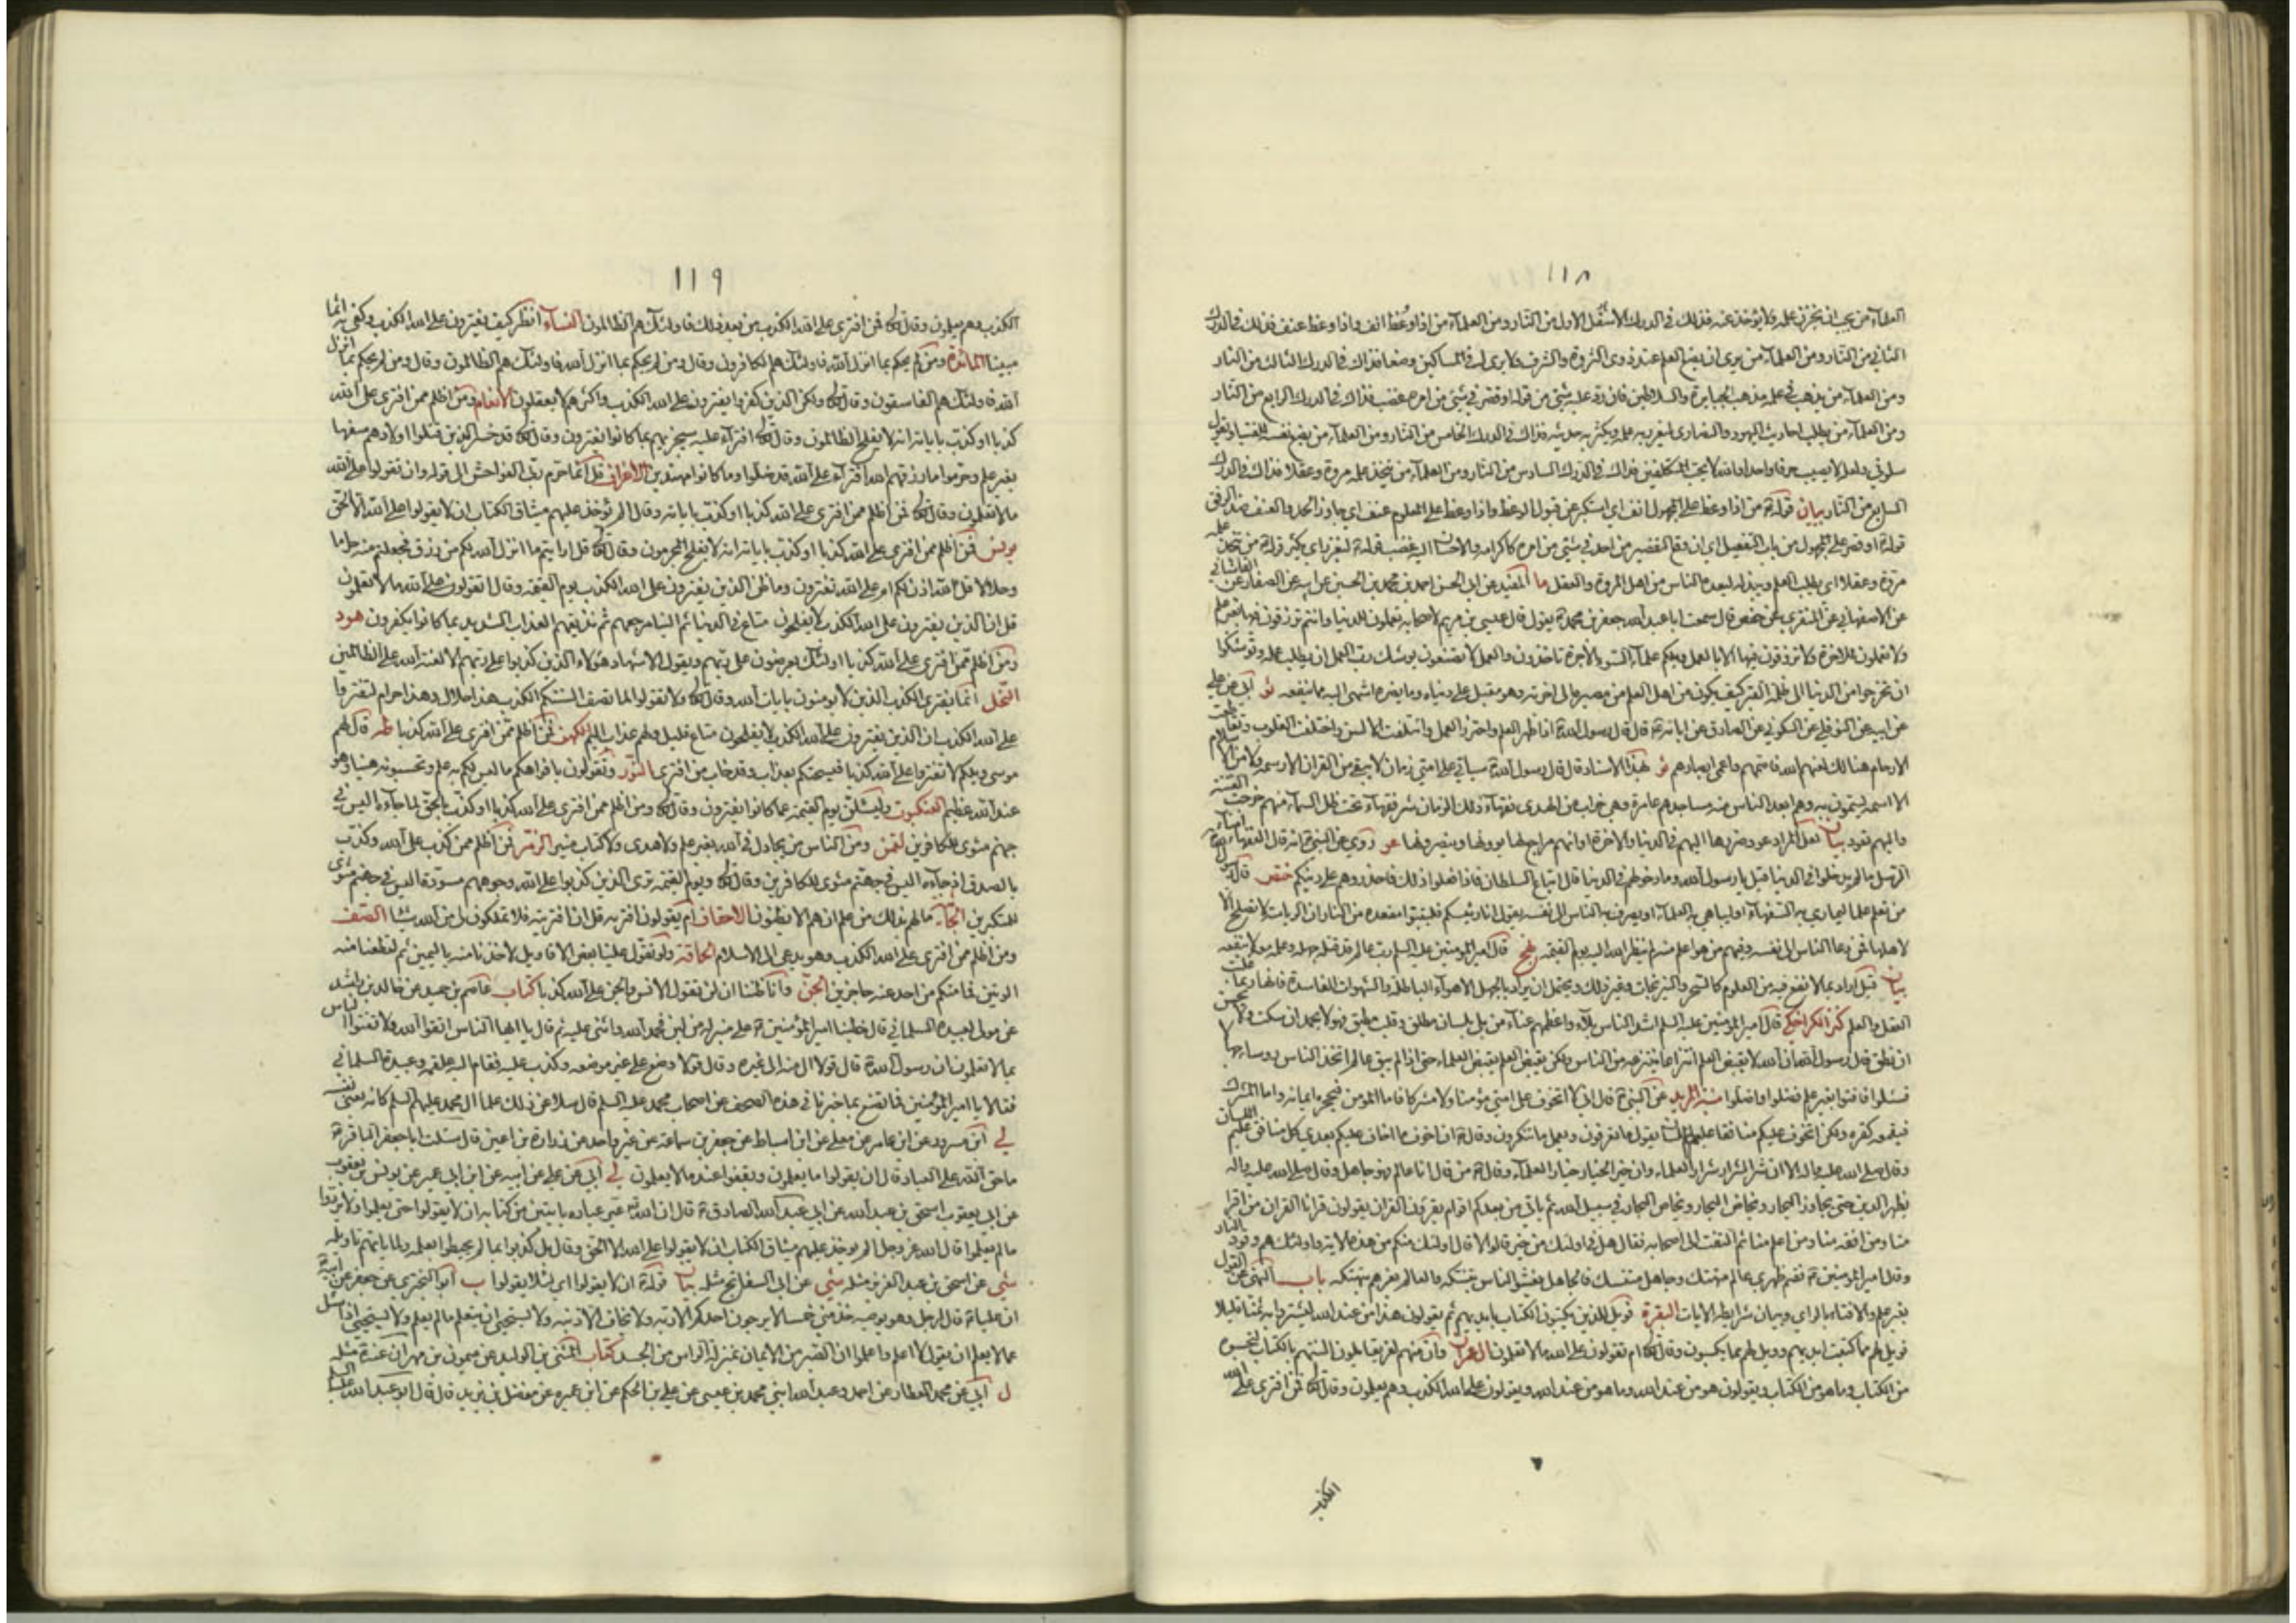 ١١٨
العلماء من يحب ان يخزن علمه ولا يؤخذ عنه فذلك في الدرك الاسفل الاول من النار ومن العلماء من اذا وُعظ انف واذا وعظ عنف فذلك في الدرك
الثاني من النار ومن العلماء من يرى ان يضع العلم عند ذوي الثروة والشرف ولا يرى له في المساكين وضعا فذاك في الدرك الثالث من النار
ومن العلماء من يذهب في علمه مذهب الجبابرة والسلاطين فان رد عليه شئ من قوله او قصر في شئ من امره غضب فذاك في الدرك الرابع من النار
ومن العلماء من يطلب احاديث اليهود والنصارى ليغزر به علمه ويكثر به حديثه فذاك في الدرك الخامس من النار ومن العلماء من يضع نفسه للفتيا ويقول
سلوني ولعله لا يصيب حرفا واحدا والله لا يحب المتكلفين فذاك في الدرك السادس من النار ومن العلماء من يتخذ علمه مروة وعقلا فذاك في الدرك
السابع من النار بيان قوله من اذا وعظ على المجهول انف اي استكبر عن قبول الوعظ واذا وعظ على المعلوم عنف اي جاوز الحد والعنف ضد الرفق
قوله او قصر على المجهول من باب التفعيل اي ان وقع التقصير من احد في شئ من امره كاكرامه والاحسان اليه غضب قوله ليغزر اي يكثر قوله من يتخذ علمه
مروة وعقلا اي يطلب العلم ويبذله ليعده الناس من اهل المروة والعقل ما المفيد عن ابي الحسن احمد بن محمد بن الحسين عن ابيه عن الصفار عن القاشاني
عن الاصفهاني عن المنقري عن حفص قال سمعت ابا عبد الله جعفر بن محمد يقول قال عيسى بن مريم لاصحابه تعملون للدنيا وانتم ترزقون فيها بغير عمل
ولا تعملون للاخرة ولا ترزقون فيها الا بالعمل ويلكم علماء السوء الاجرة تاخذون والعمل لا تصنعون يوشك رب العمل ان يطلب عمله وتوشكوا
ان تخرجوا من الدنيا الى ظلمة القبر كيف يكون من اهل العلم من مصيره الى اخرته وهو مقبل على دنياه وما يضره اشهى اليه مما ينفعه ثو ابي عن علي
عن ابيه عن النوفلي عن السكوني عن الصادق عن ابائه قال قال رسول الله اذا ظهر العلم واحترز العمل وائتلفت الالسن واختلفت القلوب وتقاطعت
الارحام هنالك لعنهم الله فاصمهم واعمى ابصارهم ثو بهذا الاسناد قال قال رسول الله سياتي على امتي زمان لا يبقى من القران الا رسمه ولا من الاسلام
الا اسمه يسمون به وهم ابعد الناس منه مساجدهم عامرة وهي خراب من الهدى فقهاء ذلك الزمان شر فقهاء تحت ظل السماء منهم خرجت الفتنة
واليهم تعود بيان لعل المراد عود ضررها اليهم في الدنيا والاخرة او انهم مراجع لها يؤوونها وينصرونها غو روي عن النبي انه قال الفقهاء امناء
الرسل ما لم يدخلوا في الدنيا قيل يا رسول الله وما دخولهم في الدنيا قال اتباع السلطان فاذا فعلوا ذلك فاحذروهم على دينكم ختص قال رسول الله
من تعلم علما ليماري به السفهاء او ليباهي به العلماء او يصرف به الناس الى نفسه يقول انا رئيسكم فليتبوا مقعده من النار ان الرياسة لا تصلح الا
لاهلها فمن دعا الناس الى نفسه وفيهم من هو اعلم منه لم ينظر الله اليه يوم القيمة نهج قال امير المؤمنين عليه السلم رب عالم قد قتله جهله وعلمه معه لا ينفعه
بيان قيل اراد بما لا نفع فيه من العلوم كالسحر والنيرنجات وغير ذلك ويحتمل ان يراد بالجهل الاهواء الباطلة والشهوات الفاسدة فانها ربما غلبت
العقل والعلم كنز الكراجكي قال امير المؤمنين عليه السلم اشد الناس بلاء واعظمهم عناء من بلي بلسان مطلق وقلب مطبق فهو لا يحمد ان سكت ولا يحسن
ان نطق قال رسول الله ان الله لا يقبض العلم انتزاعا ينتزعه من الناس ولكن يقبض العلم بقبض العلماء حتى اذا لم يبق عالم اتخذ الناس رؤساء جهالا
فسئلوا فافتوا بغير علم فضلوا واضلوا منية المريد عن النبي قال اني لا اتخوف على امتي مؤمنا ولا مشركا فاما المؤمن فيحجره ايمانه واما المشرك
فيقمعه كفره ولكن اتخوف عليكم منافقا عليم اللسان يقول ما تعرفون ويعمل ما تنكرون وقال ان اخوف ما اخاف عليكم بعدي كل منافق عليم اللسان
وقال صلى الله عليه واله الا ان شر الشر شرار العلماء وان خير الخير خيار العلماء وقال من قال انا عالم فهو جاهل وقال صلى الله عليه واله
يظهر الدين حتى يجاوز البحار وتخاض البحار في سبيل الله ثم ياتي من بعدكم اقوام يقرؤن القران يقولون قرانا القران من اقرا
منا ومن افقه منا ومن اعلم منا ثم التفت الى اصحابه فقال هل في اولئك من خير قالوا لا قال اولئك منكم من هذه الامة واولئك هم وقود النار
وقال امير المؤمنين قصم ظهري عالم متهتك وجاهل متنسك فالجاهل يغش الناس بتنسكه والعالم يغرهم بتهتكه باب النهي عن القول
بغير علم والافتاء بالراي وبيان شرايطه الايات البقرة فويل للذين يكتبون الكتاب بايديهم ثم يقولون هذا من عند الله ليشتروا به ثمنا قليلا
فويل لهم مما كتبت ايديهم وويل لهم مما يكسبون وقال ام تقولون على الله ما لا تعلمون ال عمران وان منهم لفريقا يلون السنتهم بالكتاب لتحسبوه
من الكتاب وما هو من الكتاب ويقولون هو من عند الله وما هو من عند الله ويقولون على الله الكذب وهم يعلمون وقال فمن افترى على الله
الكذب
١١٩
الكذب وهم يعلمون وقال فمن افترى على الله الكذب من بعد ذلك فاولئك هم الظالمون النساء انظر كيف يفترون على الله الكذب وكفى به اثما
مبينا المائدة ومن لم يحكم بما انزل الله فاولئك هم الكافرون وقال ومن لم يحكم بما انزل الله فاولئك هم الظالمون وقال ومن لم يحكم بما انزل
الله فاولئك هم الفاسقون وقال ولكن الذين كفروا يفترون على الله الكذب واكثرهم لا يعقلون الانعام ومن اظلم ممن افترى على الله
كذبا او كذب باياته انه لا يفلح الظالمون وقال افتراء عليه سيجزيهم بما كانوا يفترون وقال قد خسر الذين قتلوا اولادهم سفها
بغير علم وحرموا ما رزقهم الله افتراء على الله قد ضلوا وما كانوا مهتدين الاعراف قل انما حرم ربي الفواحش الى قوله وان تقولوا على الله
ما لا تعلمون وقال فمن اظلم ممن افترى على الله كذبا او كذب باياته وقال الم يؤخذ عليهم ميثاق الكتاب ان لا يقولوا على الله الا الحق
يونس فمن اظلم ممن افترى على الله كذبا او كذب باياته انه لا يفلح المجرمون وقال قل ارايتم ما انزل الله لكم من رزق فجعلتم منه حراما
وحلالا قل الله اذن لكم ام على الله تفترون وما ظن الذين يفترون على الله الكذب يوم القيمة وقال اتقولون على الله ما لا تعلمون
قل ان الذين يفترون على الله الكذب لا يفلحون متاع في الدنيا ثم الينا مرجعهم ثم نذيقهم العذاب الشديد بما كانوا يكفرون هود
ومن اظلم ممن افترى على الله كذبا اولئك يعرضون على ربهم ويقول الاشهاد هؤلاء الذين كذبوا على ربهم الا لعنة الله على الظالمين
النحل انما يفتري الكذب الذين لا يومنون بايات الله وقال ولا تقولوا لما تصف السنتكم الكذب هذا حلال وهذا حرام لتفتروا
على الله الكذب ان الذين يفترون على الله الكذب لا يفلحون متاع قليل ولهم عذاب اليم الكهف فمن اظلم ممن افترى على الله كذبا طه قال لهم
موسى ويلكم لا تفتروا على الله كذبا فيسحتكم بعذاب وقد خاب من افترى النور وتقولون بافواهكم ما ليس لكم به علم وتحسبونه هينا وهو
عند الله عظيم العنكبوت وليسئلن يوم القيمة عما كانوا يفترون وقال ومن اظلم ممن افترى على الله كذبا او كذب بالحق لما جاءه اليس في
جهنم مثوى للكافرين لقمن ومن الناس من يجادل في الله بغير علم ولا هدى ولا كتاب منير الزمر فمن اظلم ممن كذب على الله وكذب
بالصدق اذ جاءه اليس في جهنم مثوى للكافرين وقال ويوم القيمة ترى الذين كذبوا على الله وجوههم مسودة اليس في جهنم مثوى
للمتكبرين الجاثية ما لهم بذلك من علم ان هم الا يظنون الاحقاف ام يقولون افتريه قل ان افتريته فلا تملكون لي من الله شيئا الصف
ومن اظلم ممن افترى على الله الكذب وهو يدعى الى الاسلام الحاقة ولو تقول علينا بعض الاقاويل لاخذنا منه باليمين ثم لقطعنا منه
الوتين فما منكم من احد عنه حاجزين الجن وانا ظننا ان لن تقول الانس والجن على الله كذبا كتاب عاصم بن حميد عن خالد بن راشد
عن مولى لعبيدة السلماني قال خطبنا امير المؤمنين على منبر له من لبن فحمد الله واثنى عليه ثم قال يا ايها الناس اتقوا الله ولا تفتوا الناس
بما لا تعلمون ان رسول الله قال قولا ال منه الى غيره وقال قولا وضع على غير موضعه وكذب عليه فقام اليه علقمه وعبيدة السلماني
فقالا يا امير المؤمنين فما نصنع بما خبرنا في هذه الصحف عن اصحاب محمد عليه السلم قال سلا عن ذلك علماء ال محمد عليهم السلم كانه يعني نفسه
لي ابن مسرور عن ابن عامر عن معلى عن ابن اسباط عن جعفر بن سماعة عن غير واحد عن زرارة بن اعين قال سئلت ابا جعفر الباقر
ما حق الله على العباد قال ان يقولوا ما يعلمون ويقفوا عند ما لا يعلمون لي ابي عن علي عن ابيه عن ابن ابي عمير عن يونس بن يعقوب
عن ابي يعقوب اسحق بن عبد الله عن ابي عبد الله الصادق قال ان الله عير عباده بايتين من كتابه ان لا يقولوا حتى يعلموا ولا يردوا
ما لم يعلموا قال الله عز وجل الم يوخذ عليهم ميثاق الكتاب ان لا يقولوا على الله الا الحق وقال بل كذبوا بما لم يحيطوا بعلمه ولما ياتهم تاويله
شي عن اسحق بن عبد العزيز مثله شي عن ابي السفاتج مثله بيان قوله ان لا يقولوا اي لئلا يقولوا ب ابو البختري عن جعفر عن ابيه
ان عليا قال لرجل وهو يوصيه خذ مني خمسا لا يرجون احدكم الا ربه ولا يخاف الا ذنبه ولا يستحيي ان يتعلم ما لم يعلم ولا يستحيي اذا سئل
عما لا يعلم ان يقول لا اعلم واعلموا ان الصبر من الايمان بمنزلة الراس من الجسد كتاب المثنى بن الوليد عن ميمون بن مهران عنه مثله
ل ابي عن محمد العطار عن احمد وعبد الله ابني محمد بن عيسى عن علي بن الحكم عن ابن عميره عن مفضل بن يزيد قال قال ابو عبد الله عليه السلم